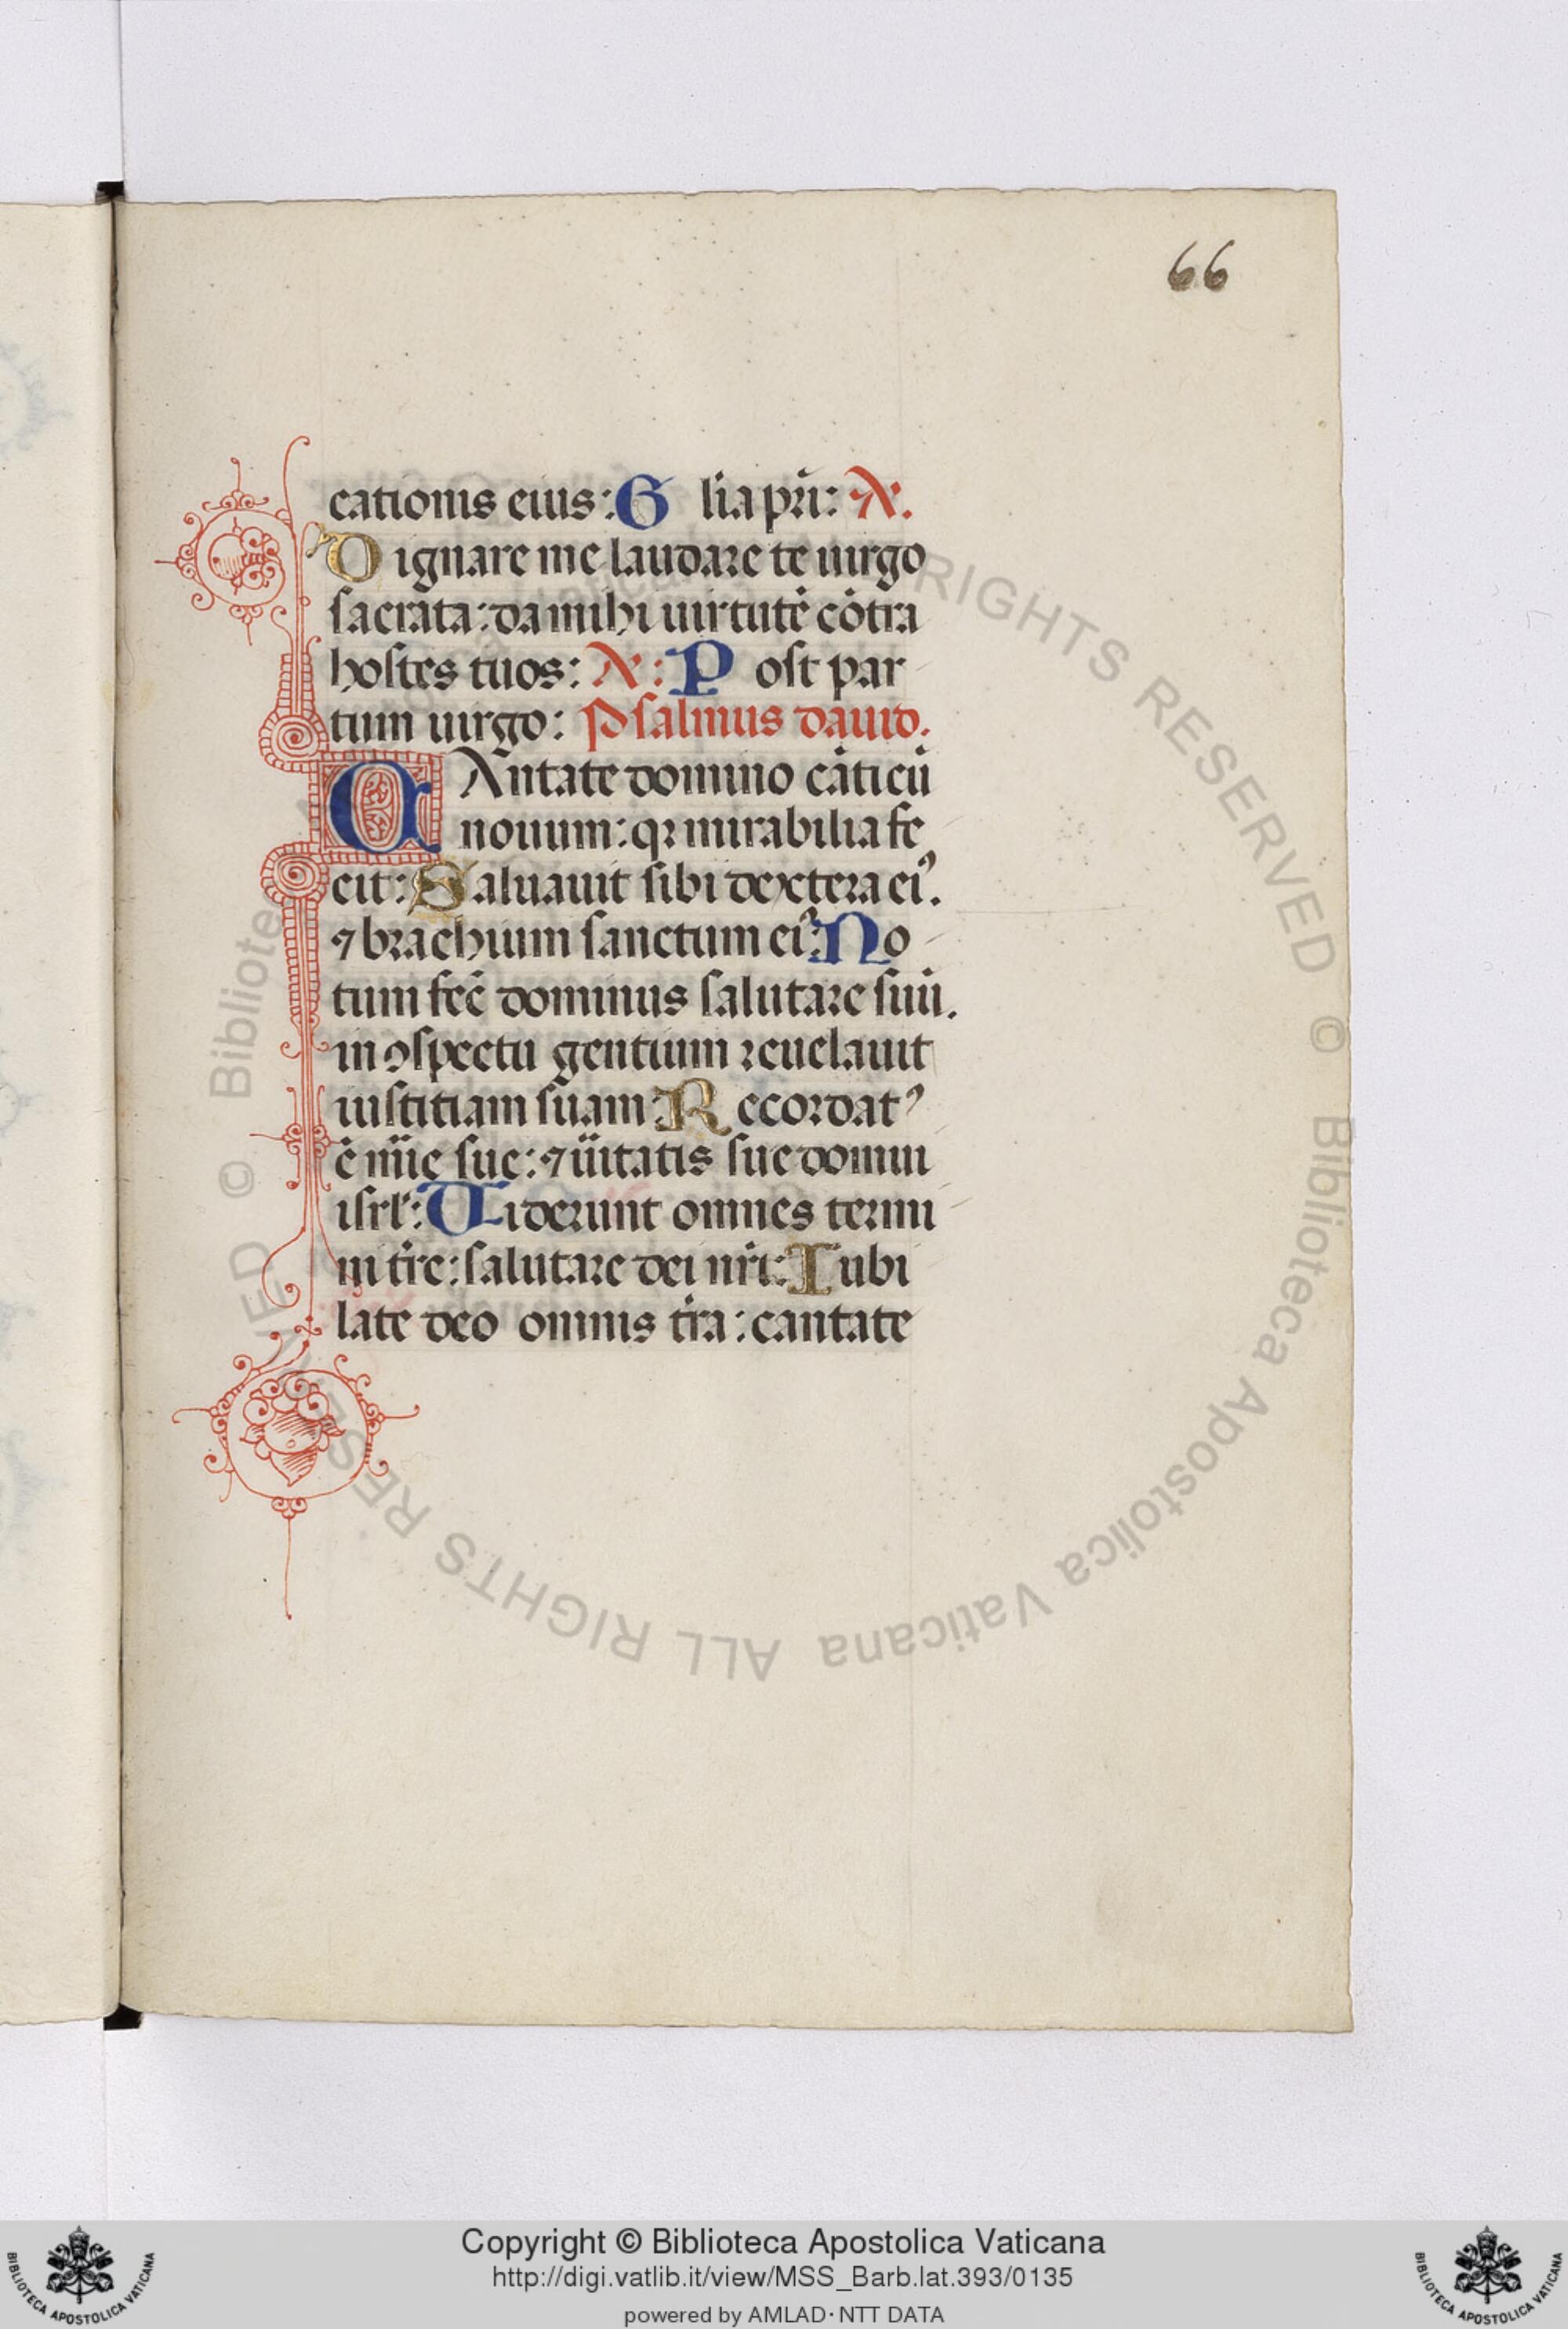 66
cationis eius: G lia pr̄i: A.
Dignare me laudare te uirgo
sacrata: da mihi uirtutē cōtra
hostes tuos: A: P ost par
tum uirgo: Psalmus dauid.
CAntate domino cāticū
nouum: qꝛ mirabilia fe
cit: Saluauit sibi dextera eiꝰ.
⁊ brachium sanctum eiꝰ: No
tum fec̄ dominus salutare suū.
in ꝯspectu gentium reuelauit
iustitiam suam: Recordatꝰ
ē mīe sue: ⁊ ūitatis sue domui
isrl̄: Uiderunt omnes termi
ni t̄re: salutare dei nr̄i: Iubi
late deo omnis t̄ra: cantate
© Biblioteca Apostolica Vaticana ALL RIGHTS RESERVED © Biblioteca Apostolica Vaticana ALL RIGHTS RESERVED
Copyright © Biblioteca Apostolica Vaticana
http://digi.vatlib.it/view/MSS_Barb.lat.393/0135
powered by AMLAD·NTT DATA
BIBLIOTECA APOSTOLICA VATICANA
BIBLIOTECA APOSTOLICA VATICANA